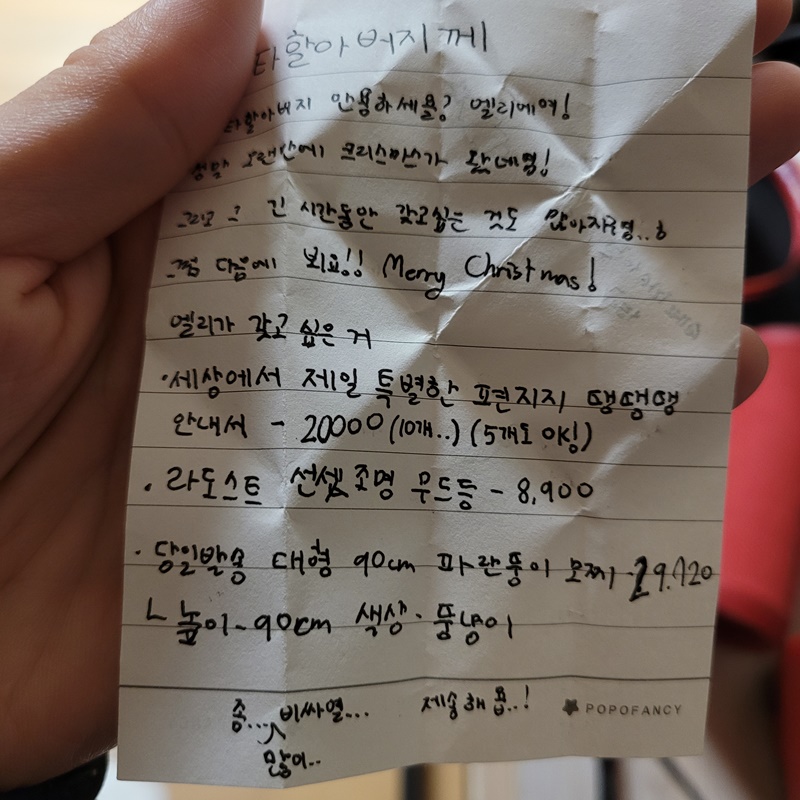 타할아버지께
타할아버지 안용하세욜? 엘리에여!
정말 오랜만에 크리스마스가 왔네염!
그리고 그 긴 시간동안 갖고싶은 것도 많아자영..ㅎ
그럼 다음에 뵈요!! Merry Christmas!
엘리가 갖고 싶은 거
·세상에서 제일 특별한 편지지 땡땡땡
안내서 - 20000 (10개..) (5개도 OK잉)
· 라도스트 선셋조명 무드등 - 8,900
· 당일발송 대형 90cm 파란풍이 모찌 - 29.720
ㄴ 높이 - 90cm 색상 · 뚱냥이
좀... 비싸열... 제송해욥..!
많이..
POPOFANCY